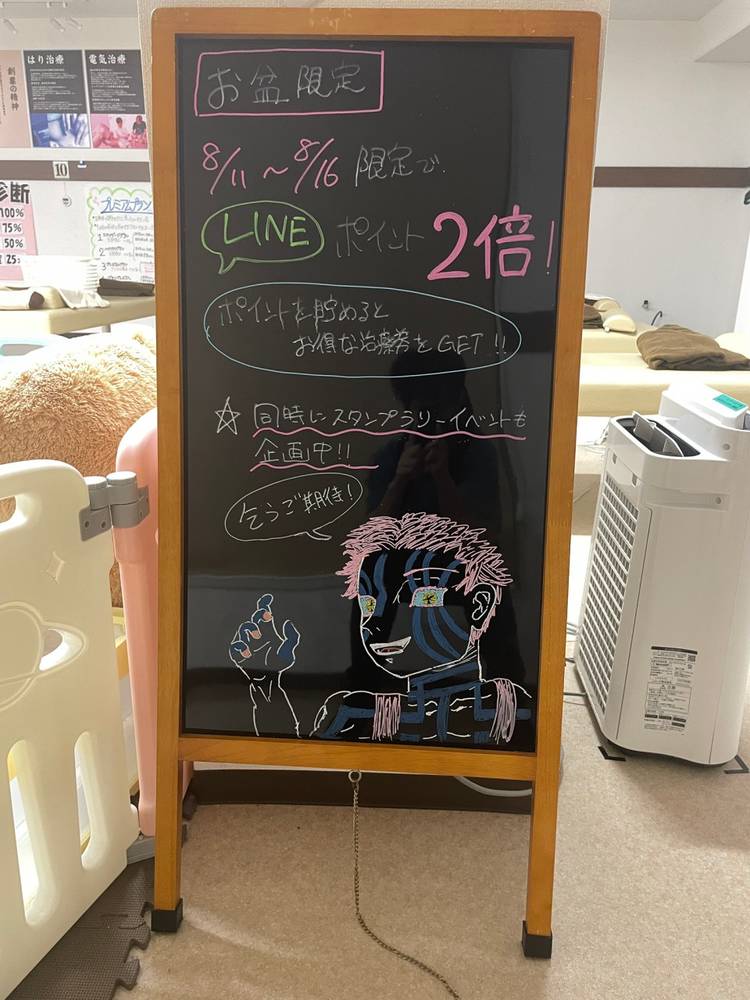 お盆限定
8/11～8/16 限定で
LINE ポイント 2倍!
ポイントを貯めると
お得な治療券をGET!!
☆ 同時にスタンプラリーイベントも
企画中!!
乞うご期待!
創業の精神
はり治療
電気治療
10
診断
100%
75%
50%
25
プレミアムプラン
1
2
3